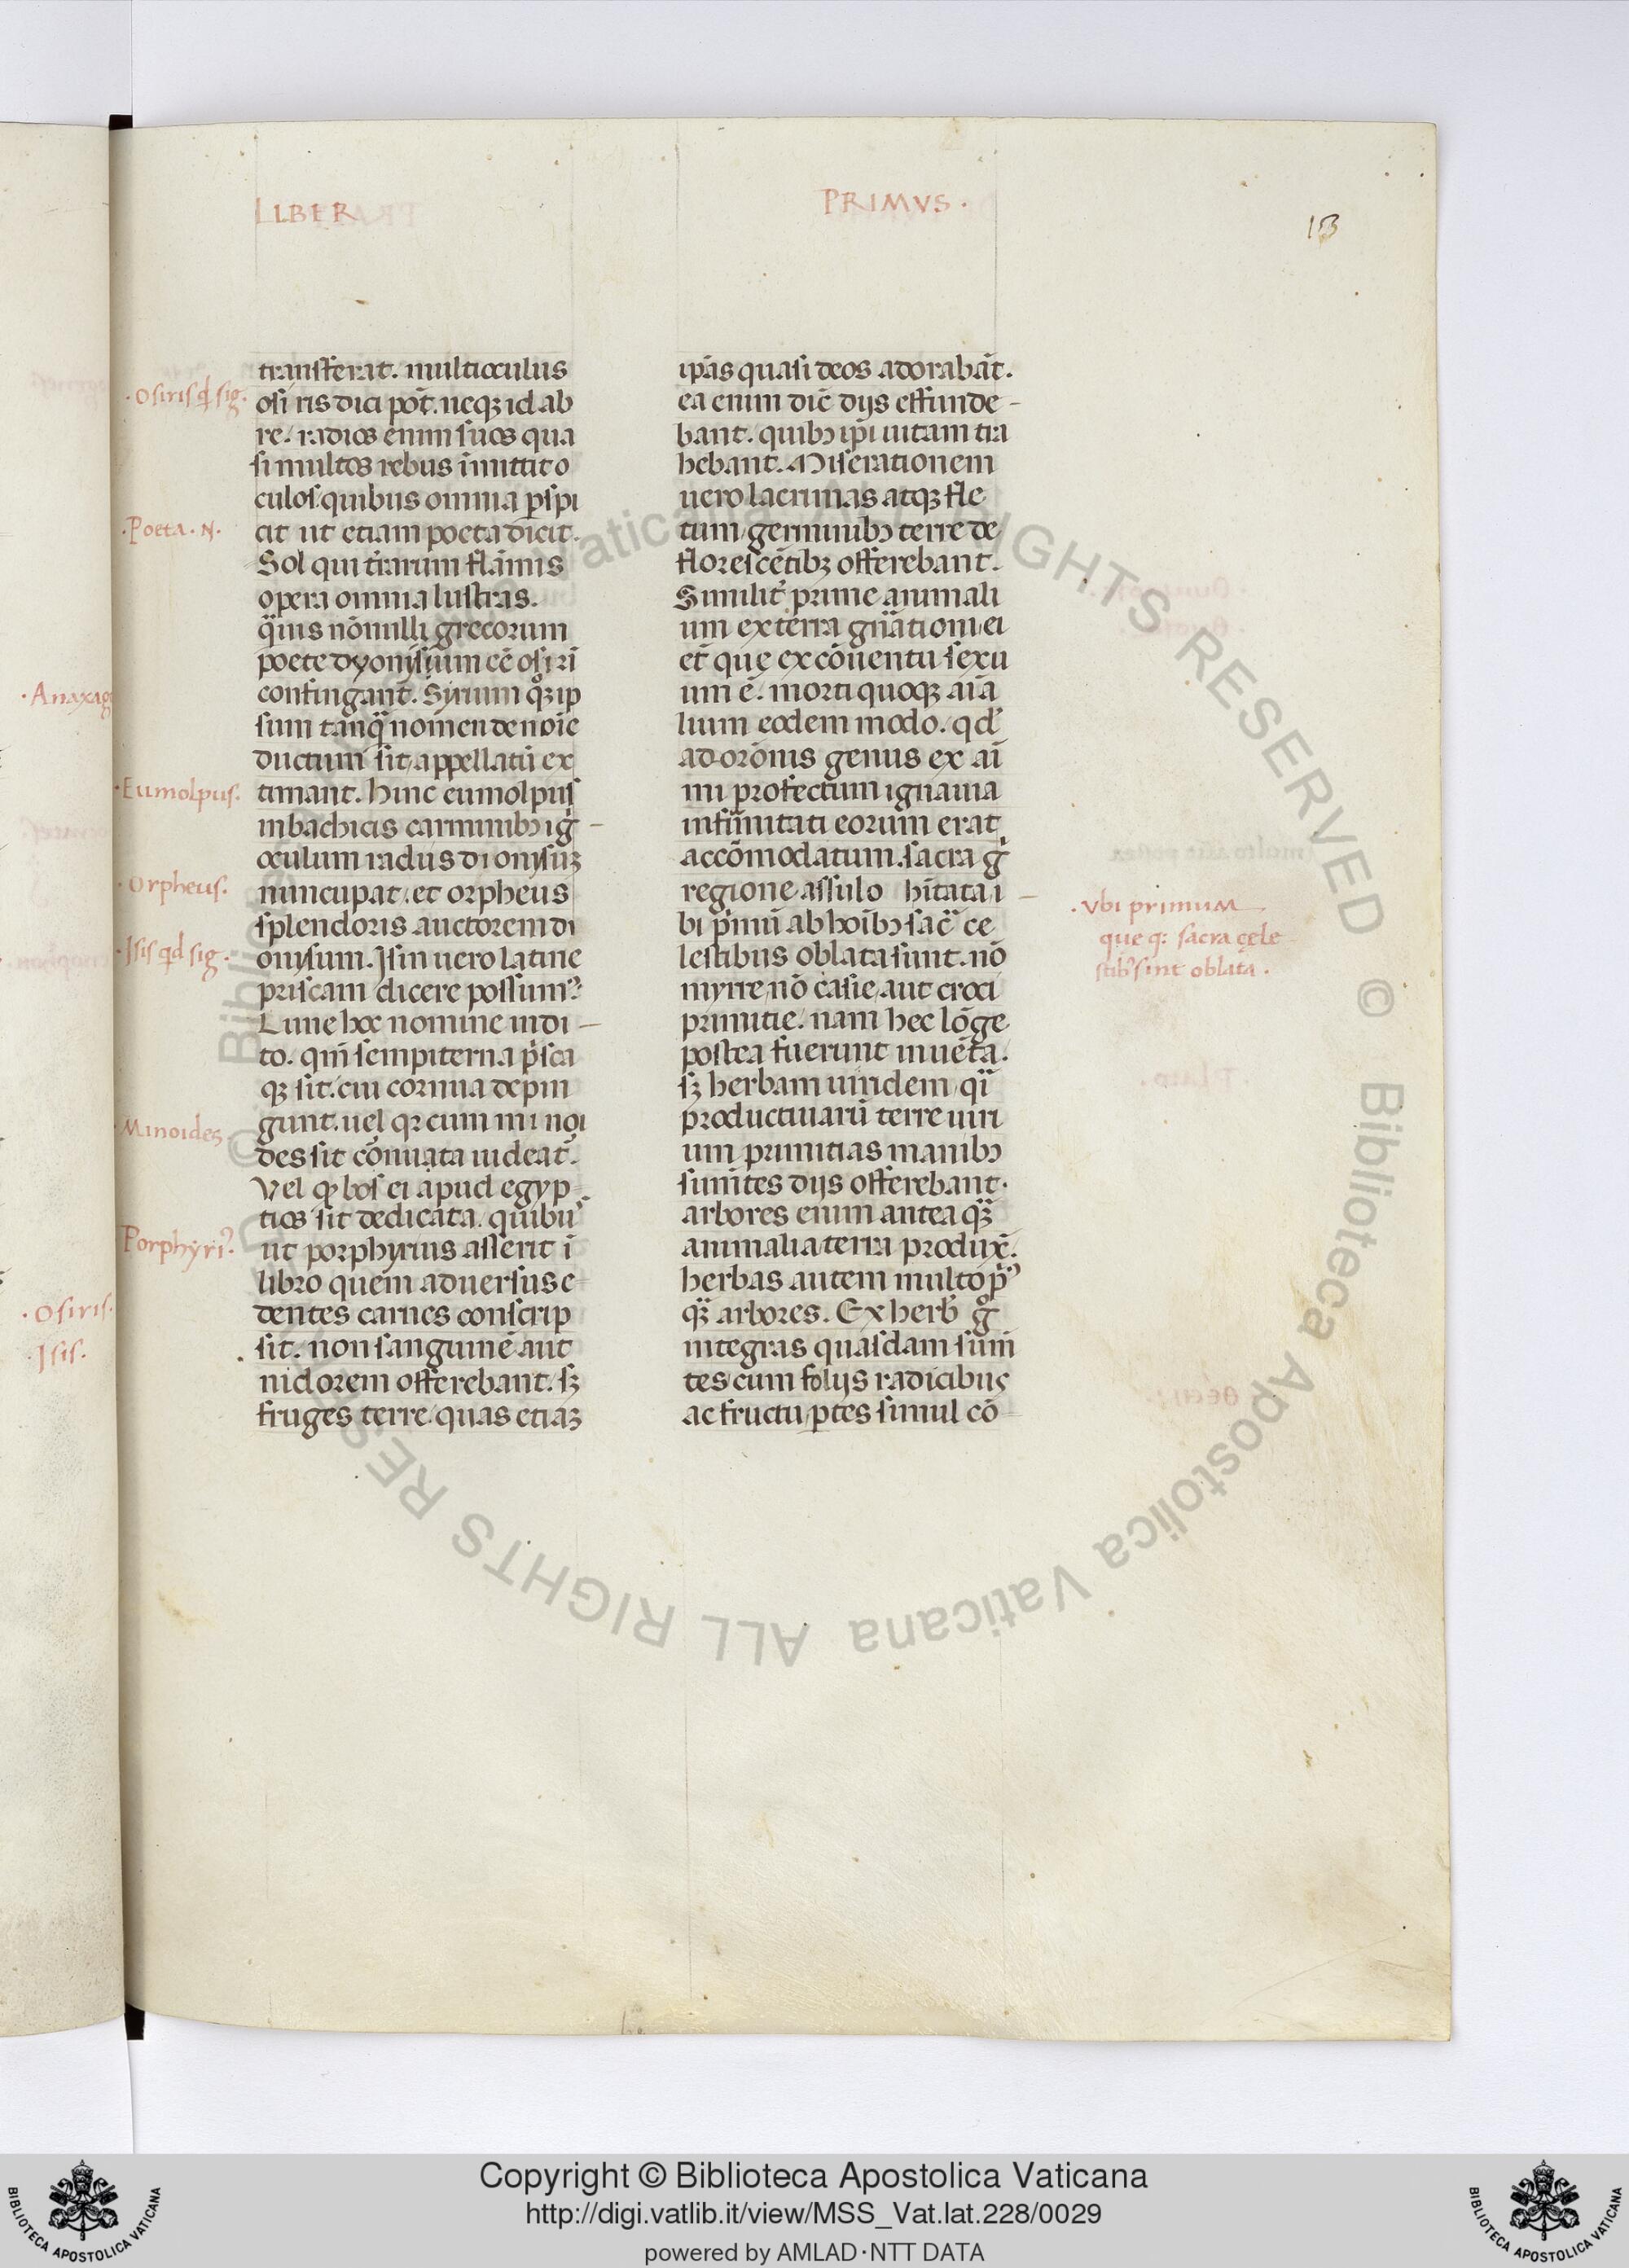 LIBER
PRIMVS.
13
transferat. multioculus
osiris dici pōt. neqꝫ id ab
re. radios enim suos qua
si multos rebus īmittit o
culos. quibus omnia ꝑspi
cit ut etiam poeta dicit.
Sol qui tr̄arum flāmis
opera omnia lustras.
q̄uis nōnulli grecorum
poete dyonisium eē osiri
confingant. Syrium ip
sum tanq̄ nomen de noīe
ductum sit appellatū ex
timant. hinc eumolpus
in bachicis carminibꝫ ig
oculum radiis dionisuꝫ
nuncupat. et orpheus
splendoris auctorem di
onisum. Isin uero latine
priscam dicere possumꝰ.
Lune hoc nomine indi
to. qm̄ sempiterna p̄sca
qꝫ sit. cui cornua depin
gunt. uel cum minoi
des sit cōnuata uideat̄.
Vel ꝙ bos ei apud egyp
tios sit dedicata. quibuˢ
ut porphyrius asserit ī
libro quem aduersus e
dentes carnes conscrip
sit. non sanguinē aut
nidorem offerebant. sꝫ
fruges terre. quas etiaꝫ
ipās quasi deos adorabāt.
ea enim die diis effunde
bant. quibꝫ ip̄i uitam tra
hebant. Miserationem
uero lacrimas atqꝫ fle
tum germinibꝫ terre de
florescētibꝫ offerebant.
Similit̄ prime animali
um ex terra gn̄ationi ei
et que ex cōuentu sexu
um ē. morti quoqꝫ aīa
lium eodem modo. qd̄
ad orōnis genus ex ai
mi profectum ignauia
infirmitati eorum erat
accōmodatum. sacra g̊
regione assulo hītata i
bi p̄mū ab hoībꝫ sac̄ ce
lestibus oblata sunt. nō
myrre nō casie aut croci
primitie. nam hec lōge
postea fuerunt inuēta.
sꝫ herbam uiridem
productiuarū terre uiri
um primitias manibꝫ
sumētes diis offerebant.
arbores enim antea
animalia terra produxē.
herbas autem multo pꝰ
arbores. Ex herb g̊
integras quasdam sum
tes cum foliis radicibus
ac fructu ꝑtes simul cō
.Osiris qd sig.
.Poeta. N.
.Eumolpus.
.Orpheus.
.Isis qd sig.
.Minoides
Porphyriꝰ.
.Vbi primum
que q: sacra cele
stibꝰ sint oblata.
.Anaxag
.Osiris.
.Isis.
Copyright © Biblioteca Apostolica Vaticana
http://digi.vatlib.it/view/MSS_Vat.lat.228/0029
powered by AMLAD·NTT DATA
BIBLIOTECA APOSTOLICA VATICANA
BIBLIOTECA APOSTOLICA VATICANA
© Biblioteca Apostolica Vaticana ALL RIGHTS RESERVED © Biblioteca Apostolica Vaticana ALL RIGHTS RESERVED